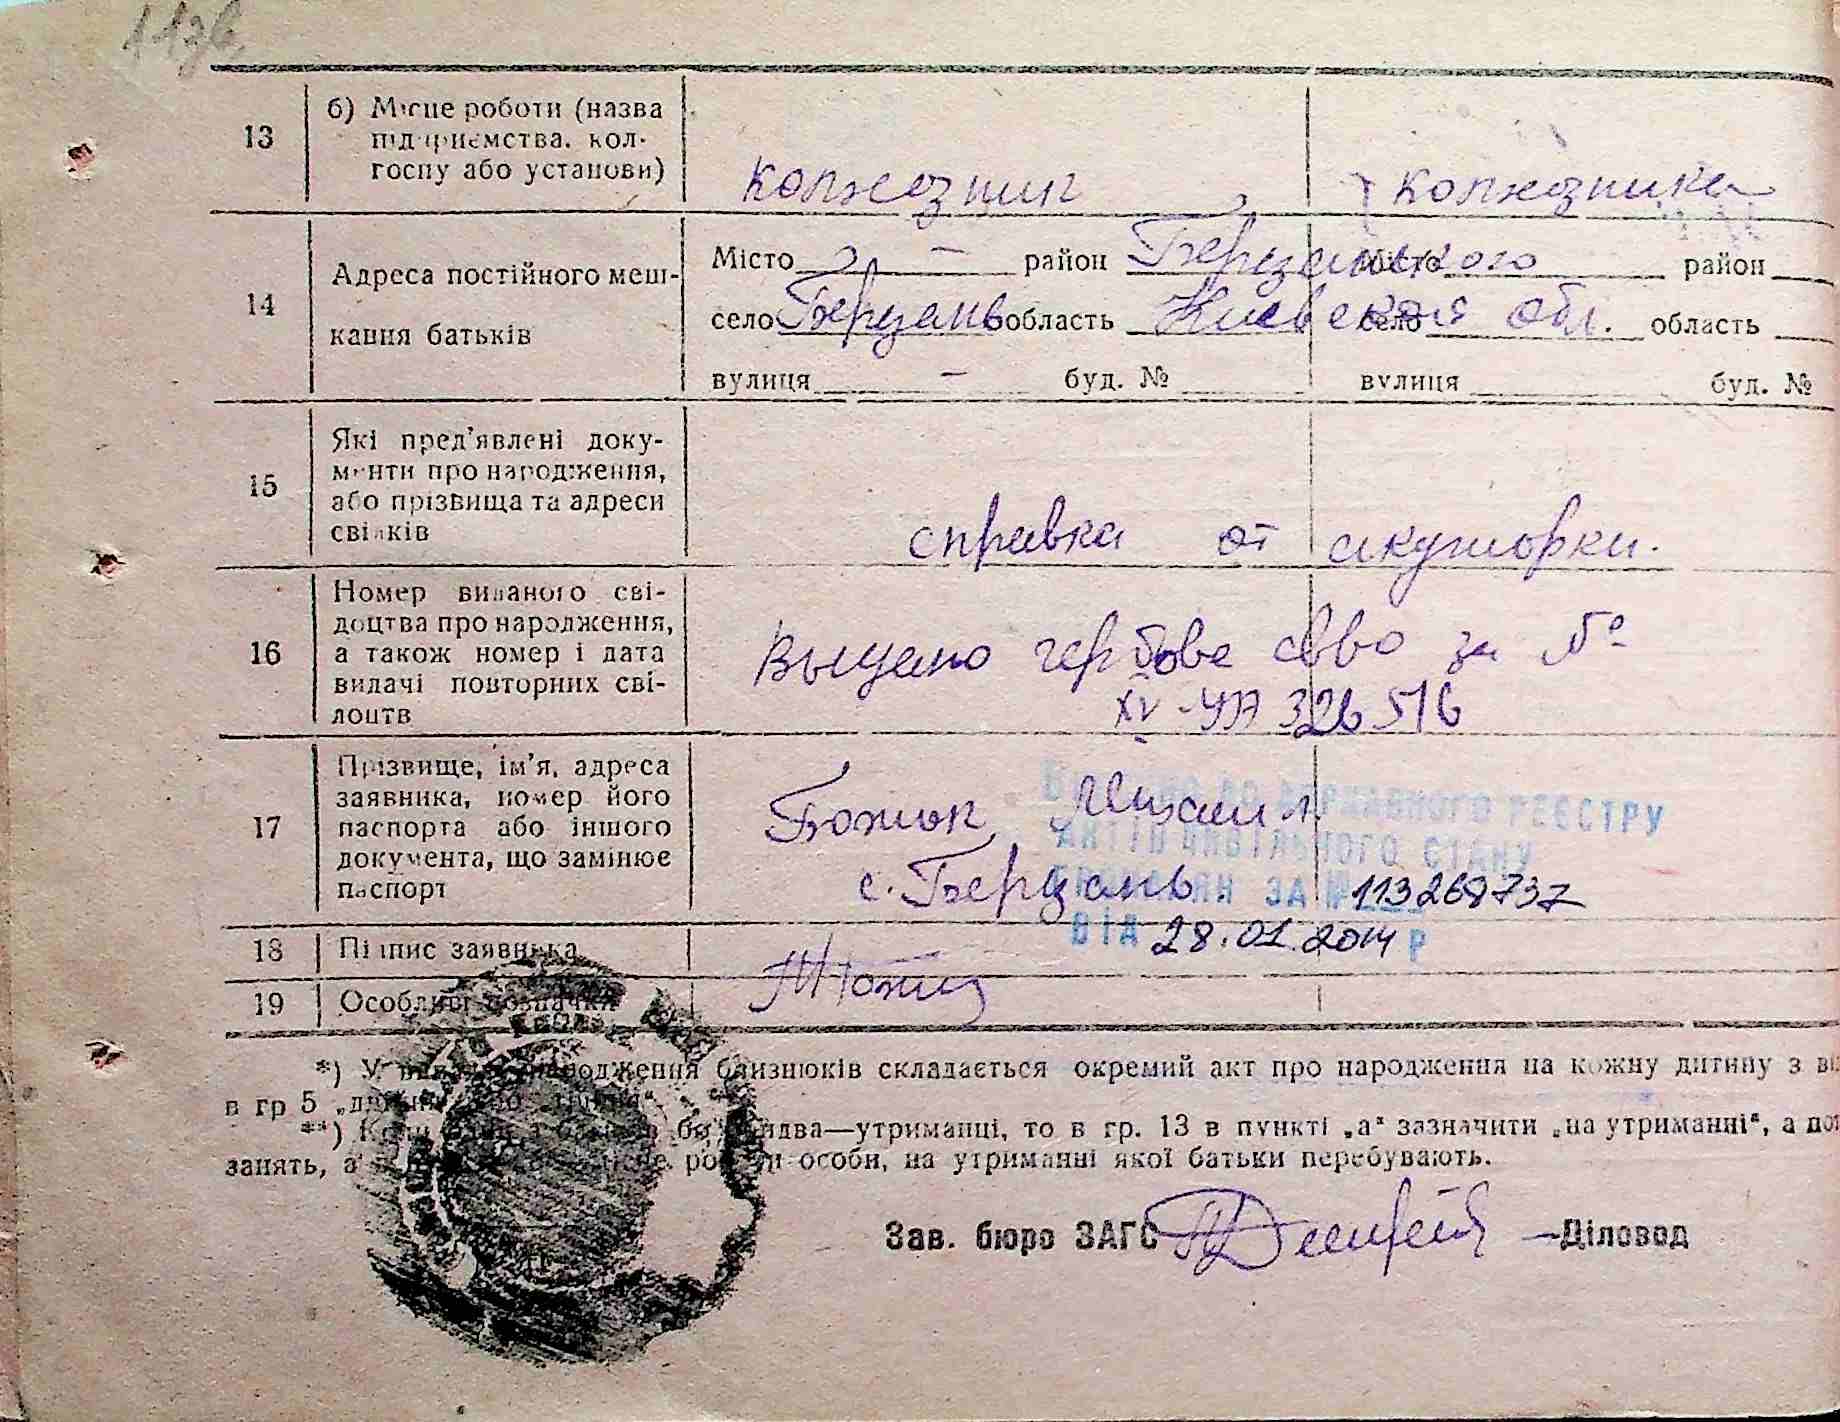 13 б) Місце роботи (назва
підприємства, кол-
госпу або установи)
колхозник колхозника
14 Адреса постійного меш-
кання батьків
Місто — район Березанського Місто район
село Березань область Киевская обл. село область
вулиця — буд. № вулиця буд. №
15 Які пред'явлені доку-
менти про народження,
або прізвища та адреси
свідків
справка от акушорки.
16 Номер виданого сві-
доцтва про народження,
а також номер і дата
видачі повторних сві-
доцтв
Выдано гербове свво за №
XV-УА 326516
17 Прізвище, ім'я, адреса
заявника, номер його
паспорта або іншого
документа, що замінює
паспорт
Божок Михаил
с. Березань.
ДО ДЕРЖАВНОГО РЕЄСТРУ
АКТІВ ЦИВІЛЬНОГО СТАНУ
ГРОМАДЯН ЗА № 113268737
ВІД 28.01.2014 р
18 Підпис заявника
19 Особливі позначки
*) У випадку народження близнюків складається окремий акт про народження на кожну дитину з
в гр 5
**) утриманці, то в гр. 13 в пункті „а" зазначити „на утриманні", а
занять, а особи, на утриманні якої батьки перебувають.
Зав. бюро ЗАГС —Діловод